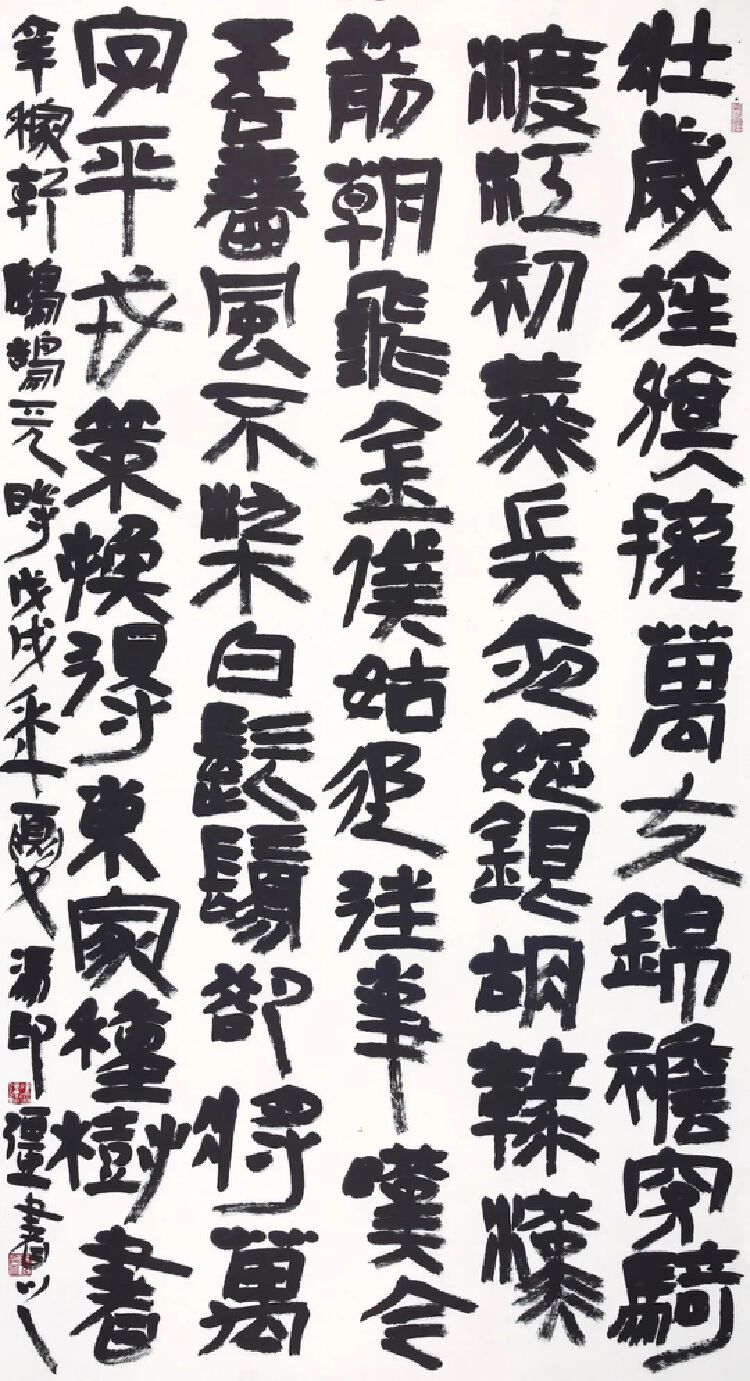 壯歲旌旗擁萬夫錦襜突騎
渡江初燕兵夜娖銀胡䩮漢
箭朝飛金僕姑追往事嘆今
吾春風不染白髭鬚卻將萬
字平戎策換得東家種樹書
辛稼軒鷓鴣天時戊戌年夏也湯印疆書